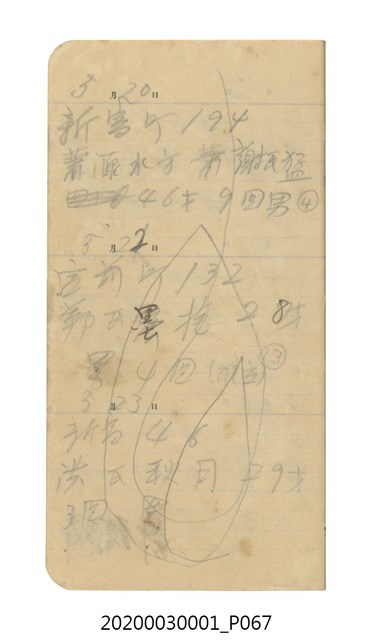 5月20日
新富町194
蕭 水 蕭謝氏猛
46才 9回男④
5月22日
宮前町132
鄭氏墨 28才
男 4回 ⑬
5月23日
新富46
洪氏秋月 29才
3回
20200030001_P067